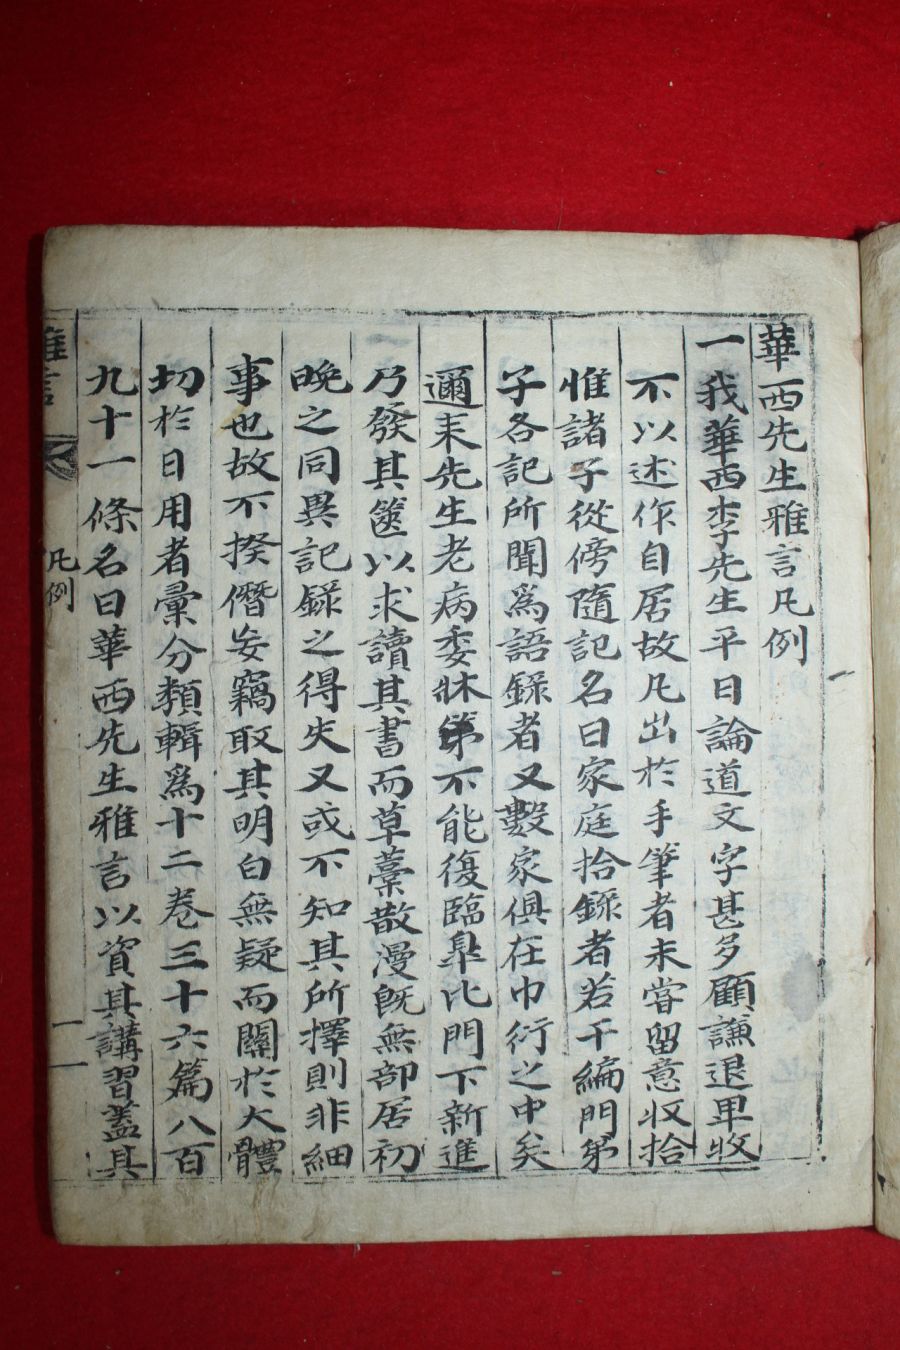 華西先生雅言凡例
一我華西李先生平日論道文字甚多顧謙退卑收
不以述作自居故凡出於手筆者未嘗留意收拾
惟諸子從傍隨記名曰家庭拾錄者若干編門弟
子各記所聞爲語錄者又數家俱在巾衍之中矣
邇来先生老病委牀第不能復臨皐比門下新進
乃發其篋以求讀其書而草藁散漫旣無部居初
晩之同異記錄之得失又或不知其所擇則非細
事也故不揆僭妄竊取其明白無疑而關於大體
切於日用者彙分類輯爲十二卷三十六篇八百
九十一條名曰華西先生雅言以資其講習蓋其
雅言
凡例
一一